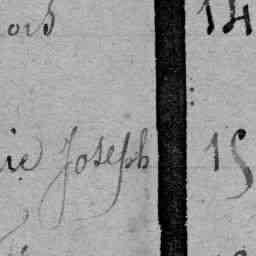 ois 14
:
ie Joseph 15